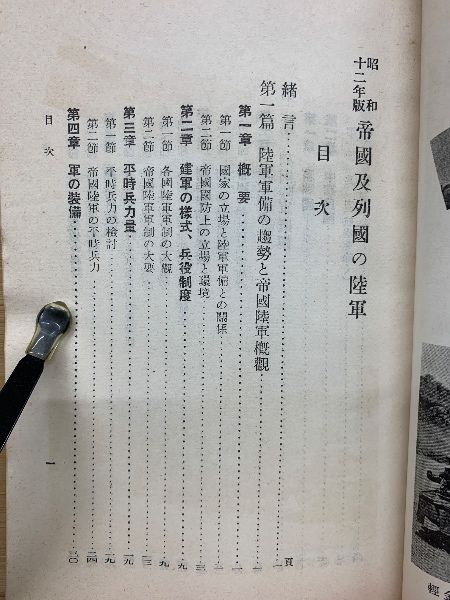 昭和十二年版 帝國及列國の陸軍
目次
頁
緒言……………………一
第一篇 陸軍軍備の趨勢と帝國陸軍概觀……………………一
第一章 概要……………………一
第一節 國家の立場と陸軍軍備との關係……………………一
第二節 帝國國防上の立場と環境……………………三
第二章 建軍の樣式、兵役制度……………………九
第一節 各國陸軍軍制の大觀……………………九
第二節 帝國陸軍軍制の大要……………………一三
第三章 平時兵力量……………………一九
第一節 平時兵力の檢討……………………一九
第二節 帝國陸軍の平時兵力……………………二四
第四章 軍の裝備……………………三〇
目次
一
輕